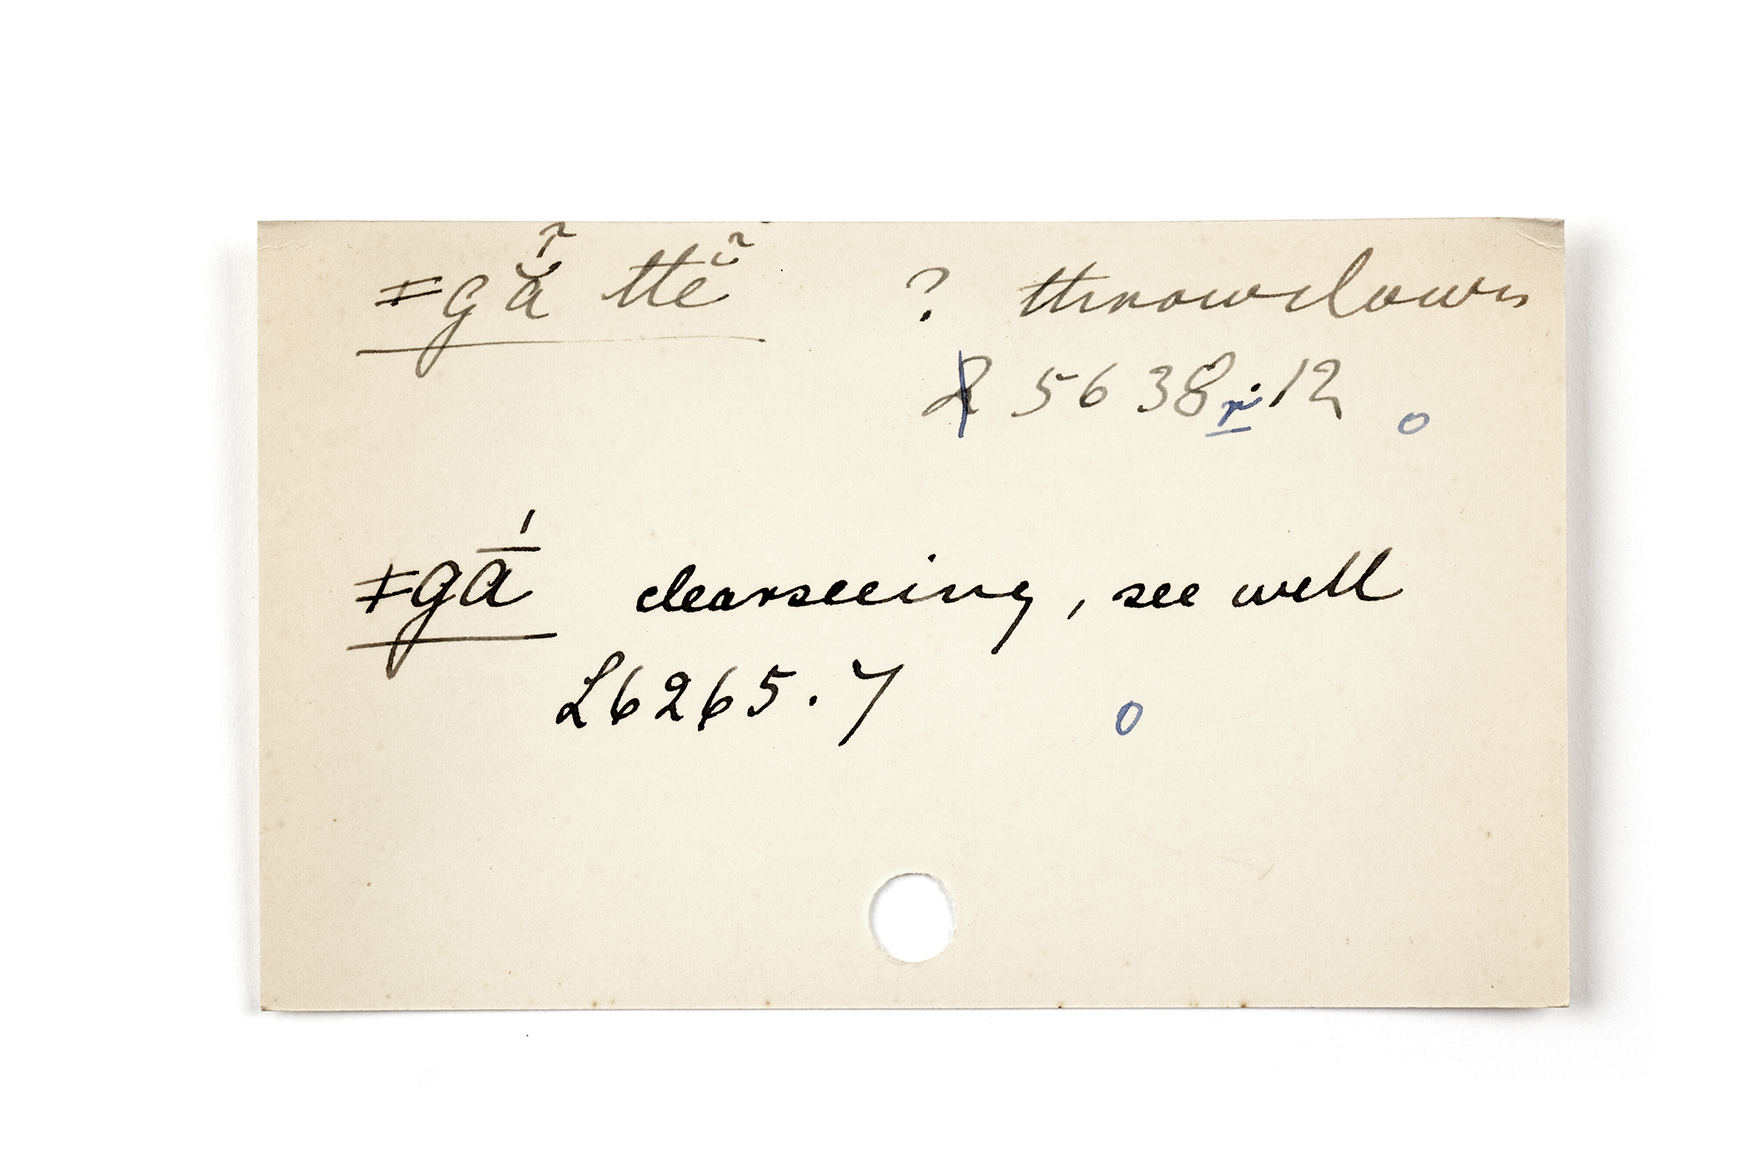 ǂgä̃ ttĕ̃ ? throw down
L 5638 rᵢ. 12 o
ǂgā́ clearseeing, see well
L6265.7 o